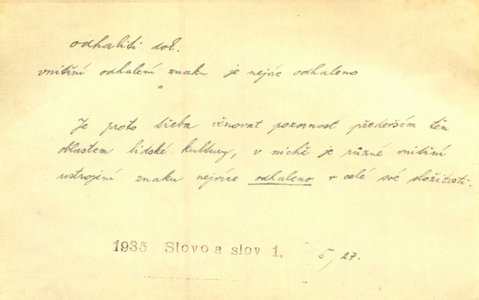 odhaliti dok.
vnitřní odhalení znaku je nejvíc odhaleno
Je proto třeba věnovat pozornost především těm
oblastem lidské kultury, v nichž je různé vnitřní
ustrojení znaku nejvíce odhaleno v celé své složitosti.
1935 Slovo a slov 1, 5/27.